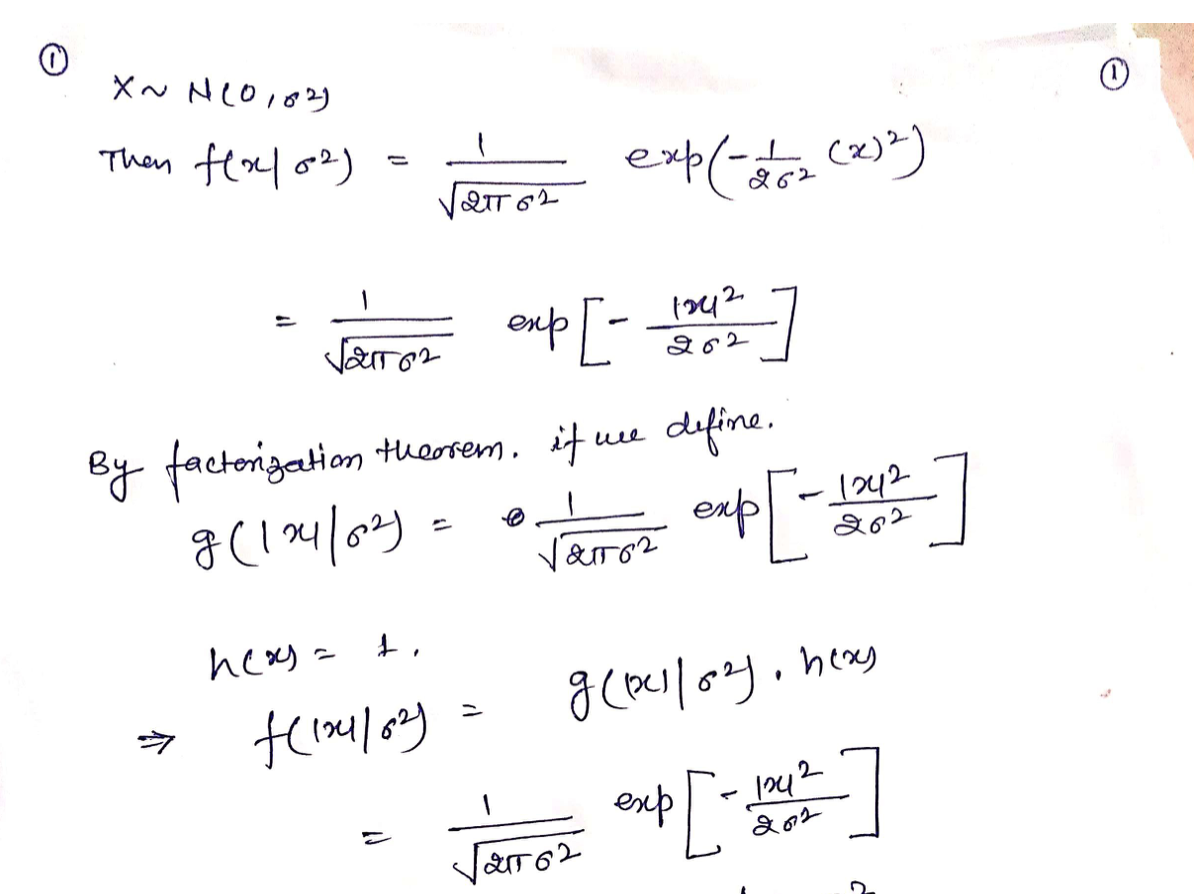 ① ①
X ~ N(0, σ²)
Then f(x|σ²) = 1/√(2πσ²) exp(-1/2σ² (x)²)
= 1/√(2πσ²) exp[- |x|²/2σ²]
By factorization theorem. if we define.
g(|x||σ²) = 1/√(2πσ²) exp[- |x|²/2σ²]
h(x) = 1.
⇒ f(|x||σ²) = g(|x||σ²) . h(x)
= 1/√(2πσ²) exp[- |x|²/2σ²]